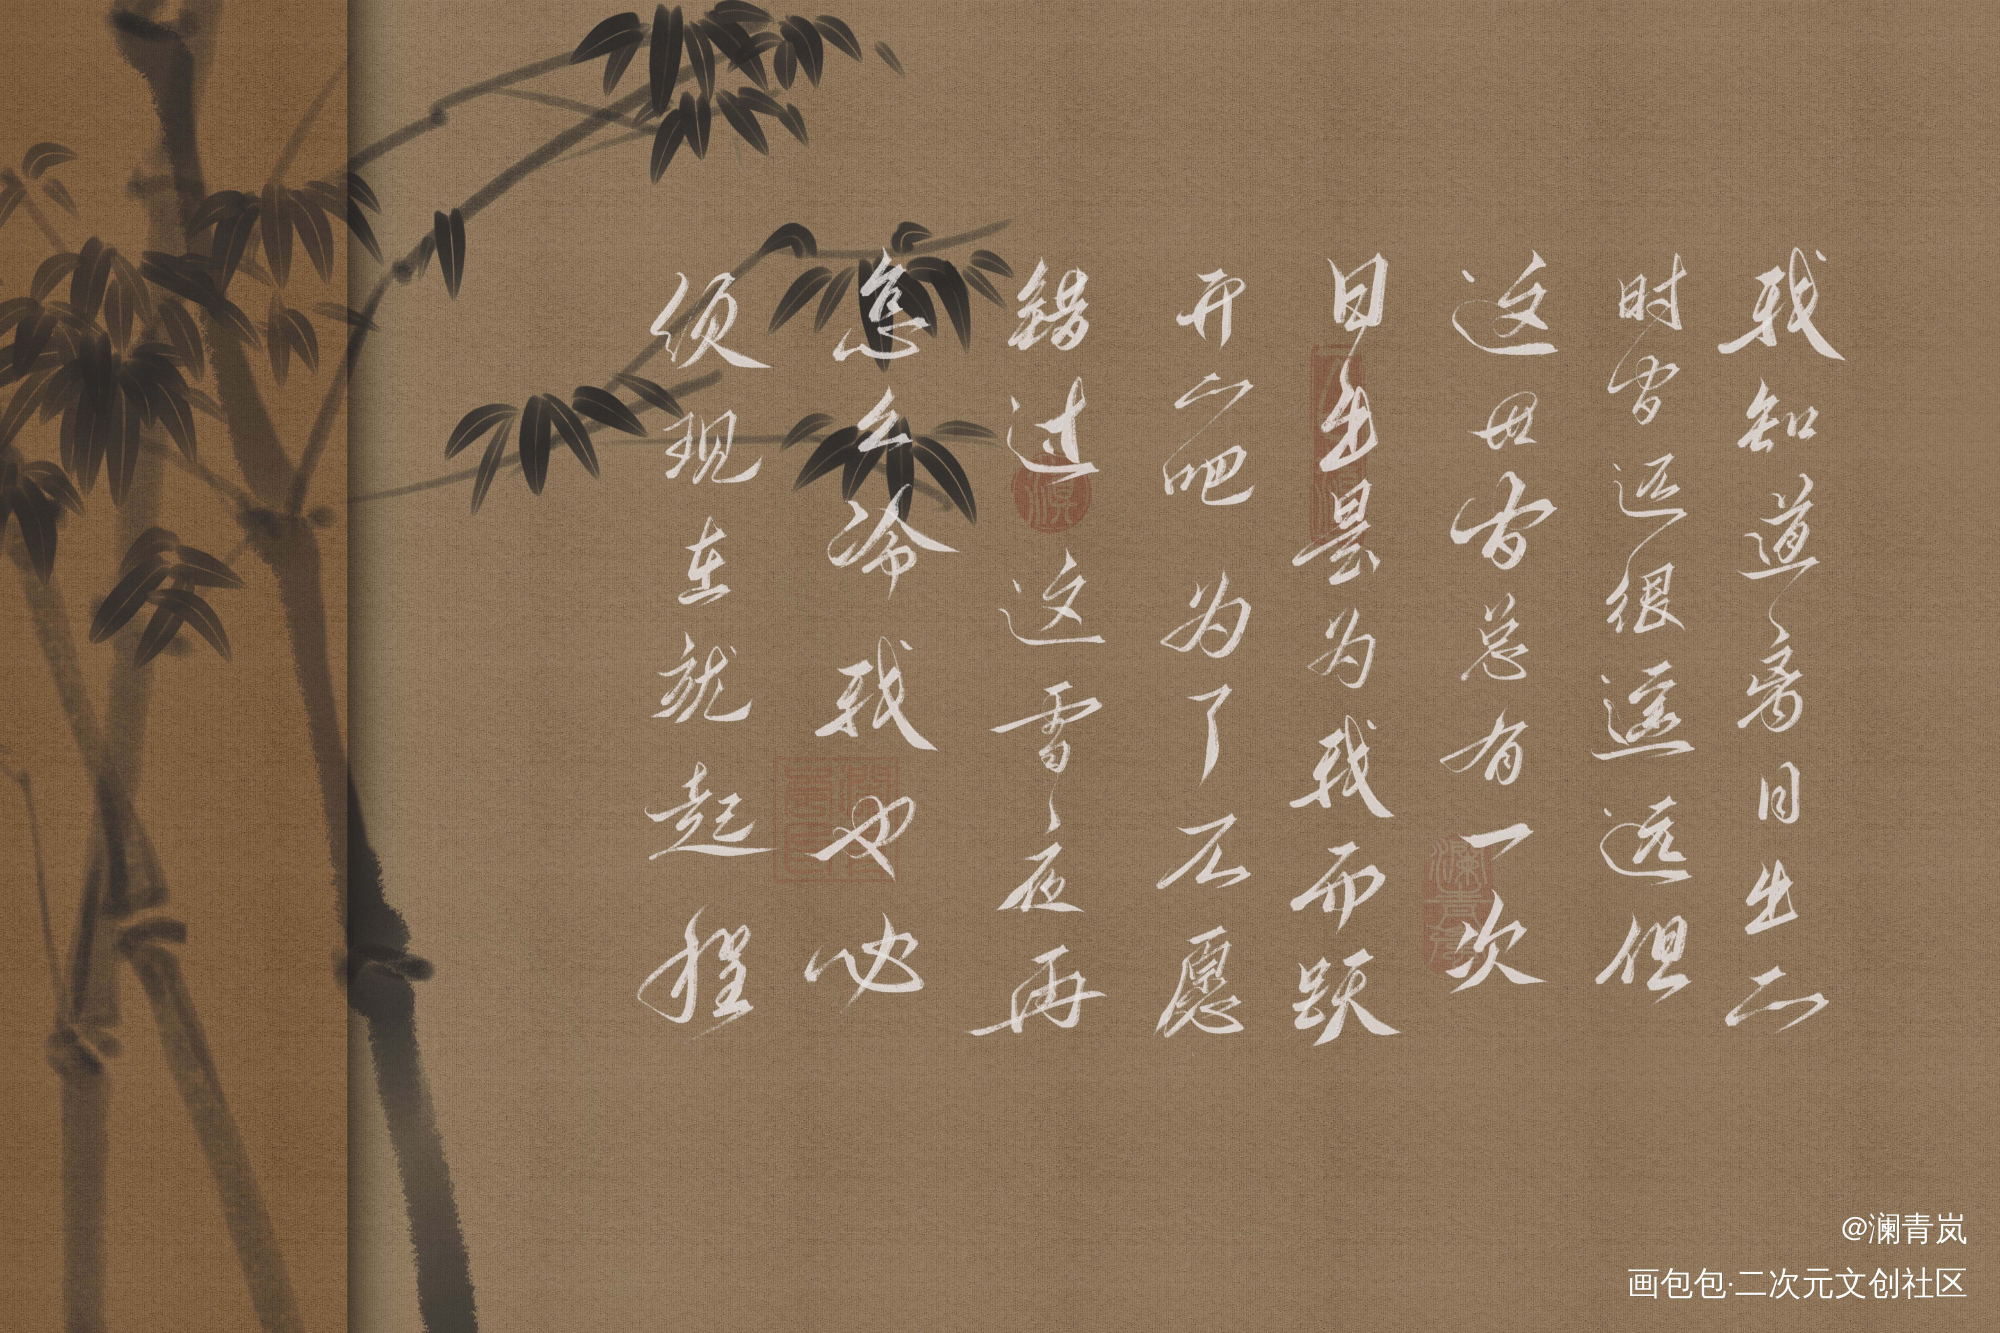 我知道离日出的
时间还很遥远但
这世间总有一次
日出是为我而跃
开的吧为了不愿
错过这雪夜再
怎么冷我也必
须现在就起程
@澜青岚
画包包·二次元文创社区